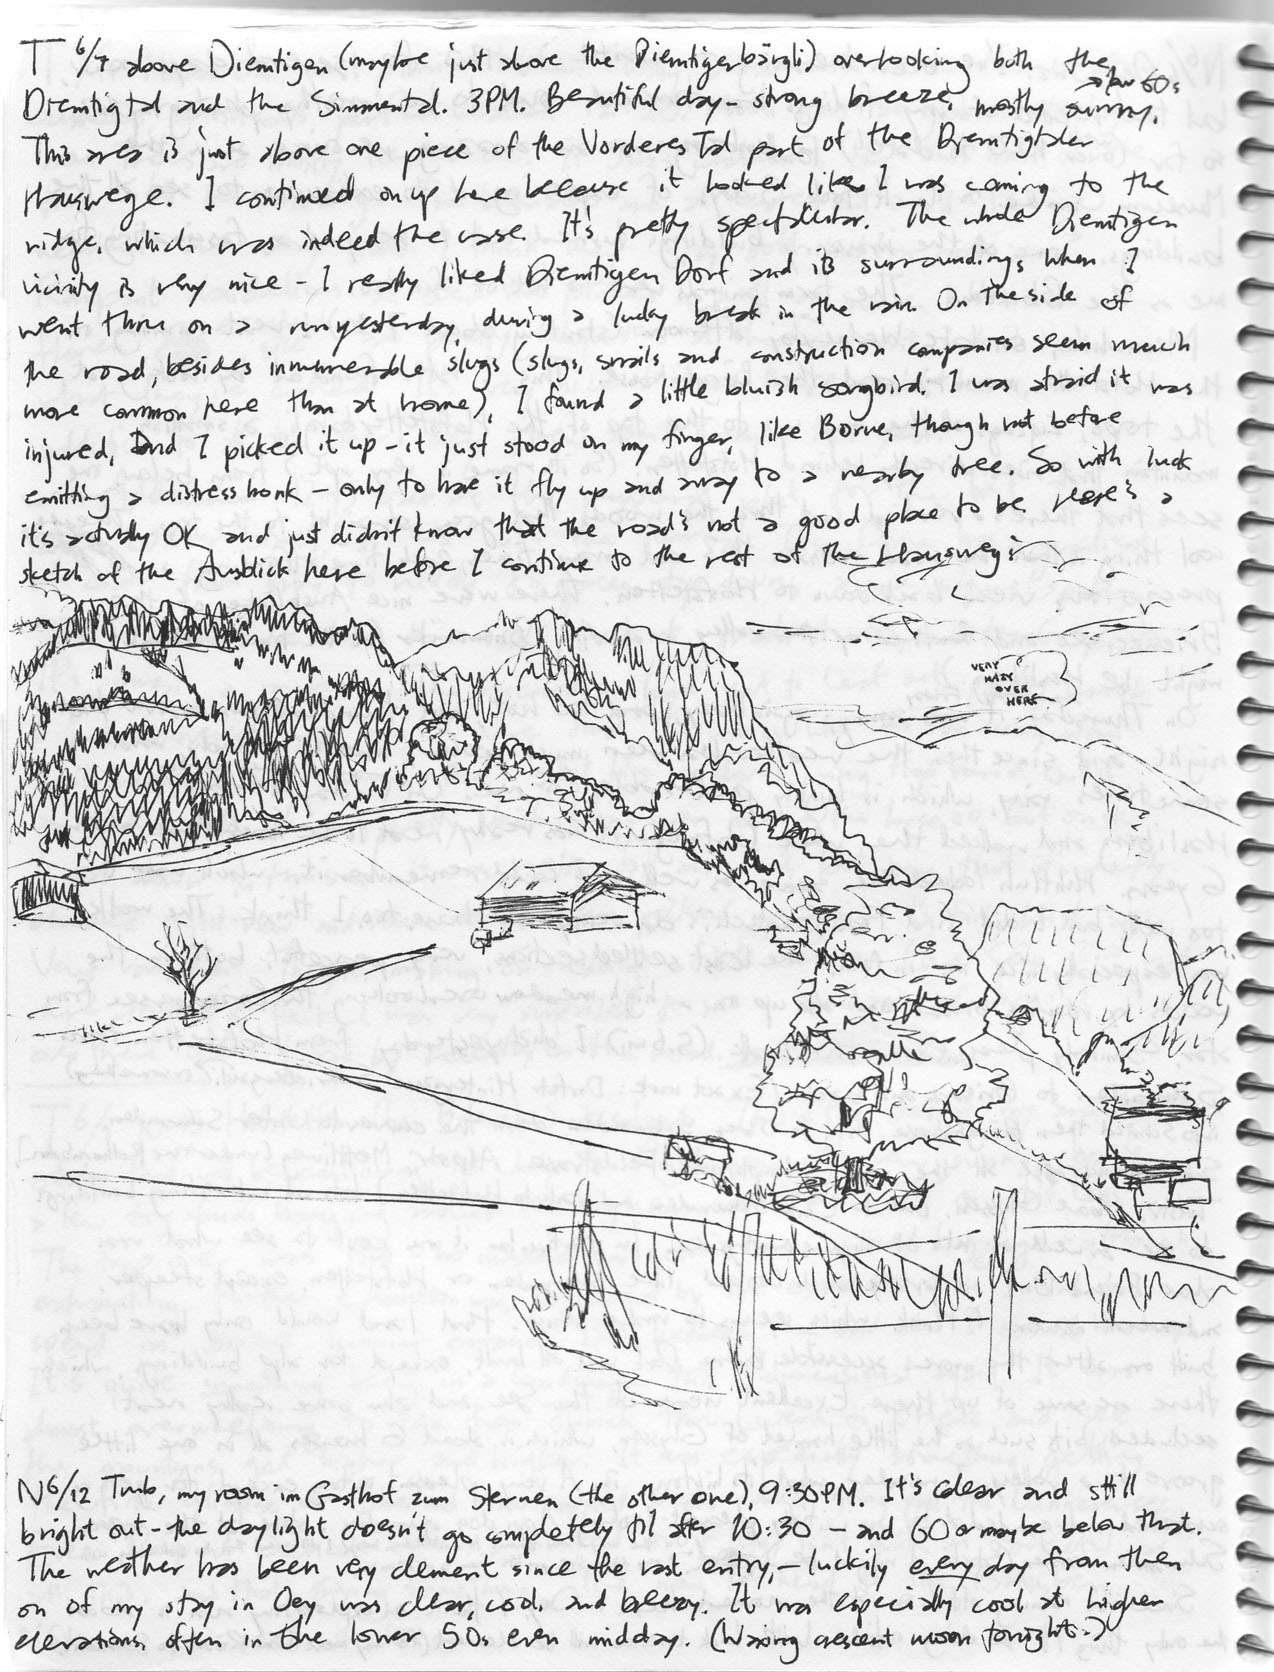 T 6/7 above Diemtigen (maybe just above the Diemtigenbärgli) overlooking both the
Diemtigtal and the Simmental. 3PM. Beautiful day – strong breeze, mostly sunny, low 60s
This area is just above one piece of the Vorderes Tal part of the Diemtigtaler
Hauswege. I continued on up here because it looked like I was coming to the
ridge, which was indeed the case. It's pretty spectacular. The whole Diemtigen
vicinity is very nice – I really liked Diemtigen Dorf and its surroundings when I
went thru on a run yesterday, during a lucky break in the rain. On the side of
the road, besides innumerable slugs (slugs, snails and construction companies seem much
more common here than at home), I found a little bluish songbird. I was afraid it was
injured, and I picked it up – it just stood on my finger, like Borue, though not before
emitting a distress honk – only to have it fly up and away to a nearby tree. So with luck
it's actually OK and just didn't know that the road's not a good place to be. Here's a
sketch of the Ausblick here before I continue to the rest of the Hausweg:
VERY
HAZY
OVER
HERE
N 6/12 Trub, my room im Gasthof zum Sternen (the other one), 9:30PM. It's clear and still
bright out – the daylight doesn't go completely til after 10:30 – and 60 or maybe below that.
The weather has been very clement since the last entry, – luckily every day from then
on of my stay in Oey was clear, cool, and breezy. It was especially cool at higher
elevations, often in the lower 50s even midday. (Waxing crescent moon tonight:-)